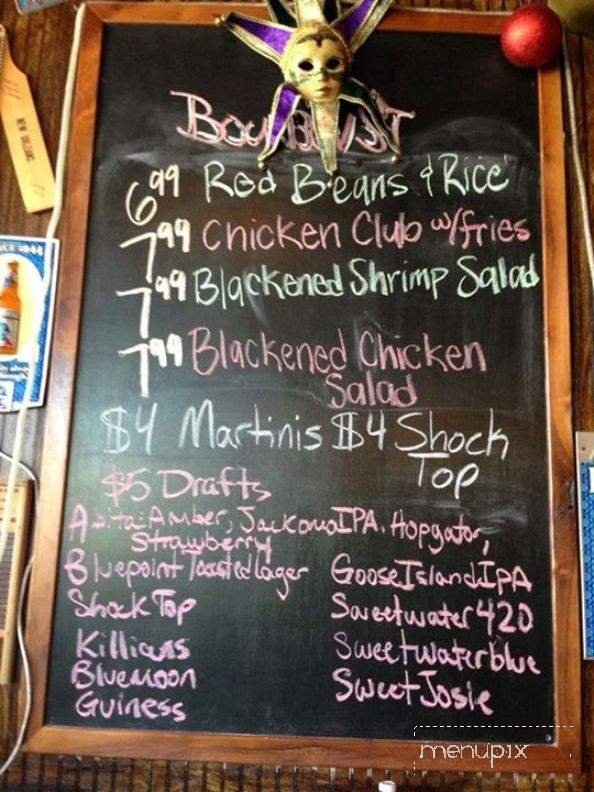 NEW ORLEANS
6.99 Red Beans & Rice
7.99 Chicken Club w/fries
7.99 Blackened Shrimp Salad
7.99 Blackened Chicken
Salad
$4 Martinis $4 Shock
Top
$5 Drafts
Abita: Amber, JockomoIPA, Hopgator,
Strawberry
Bluepoint Toasted Lager GooseIslandIPA
Shock Top Sweetwater 420
Killians Sweetwaterblue
Bluemoon Sweet Josie
Guiness
menupix